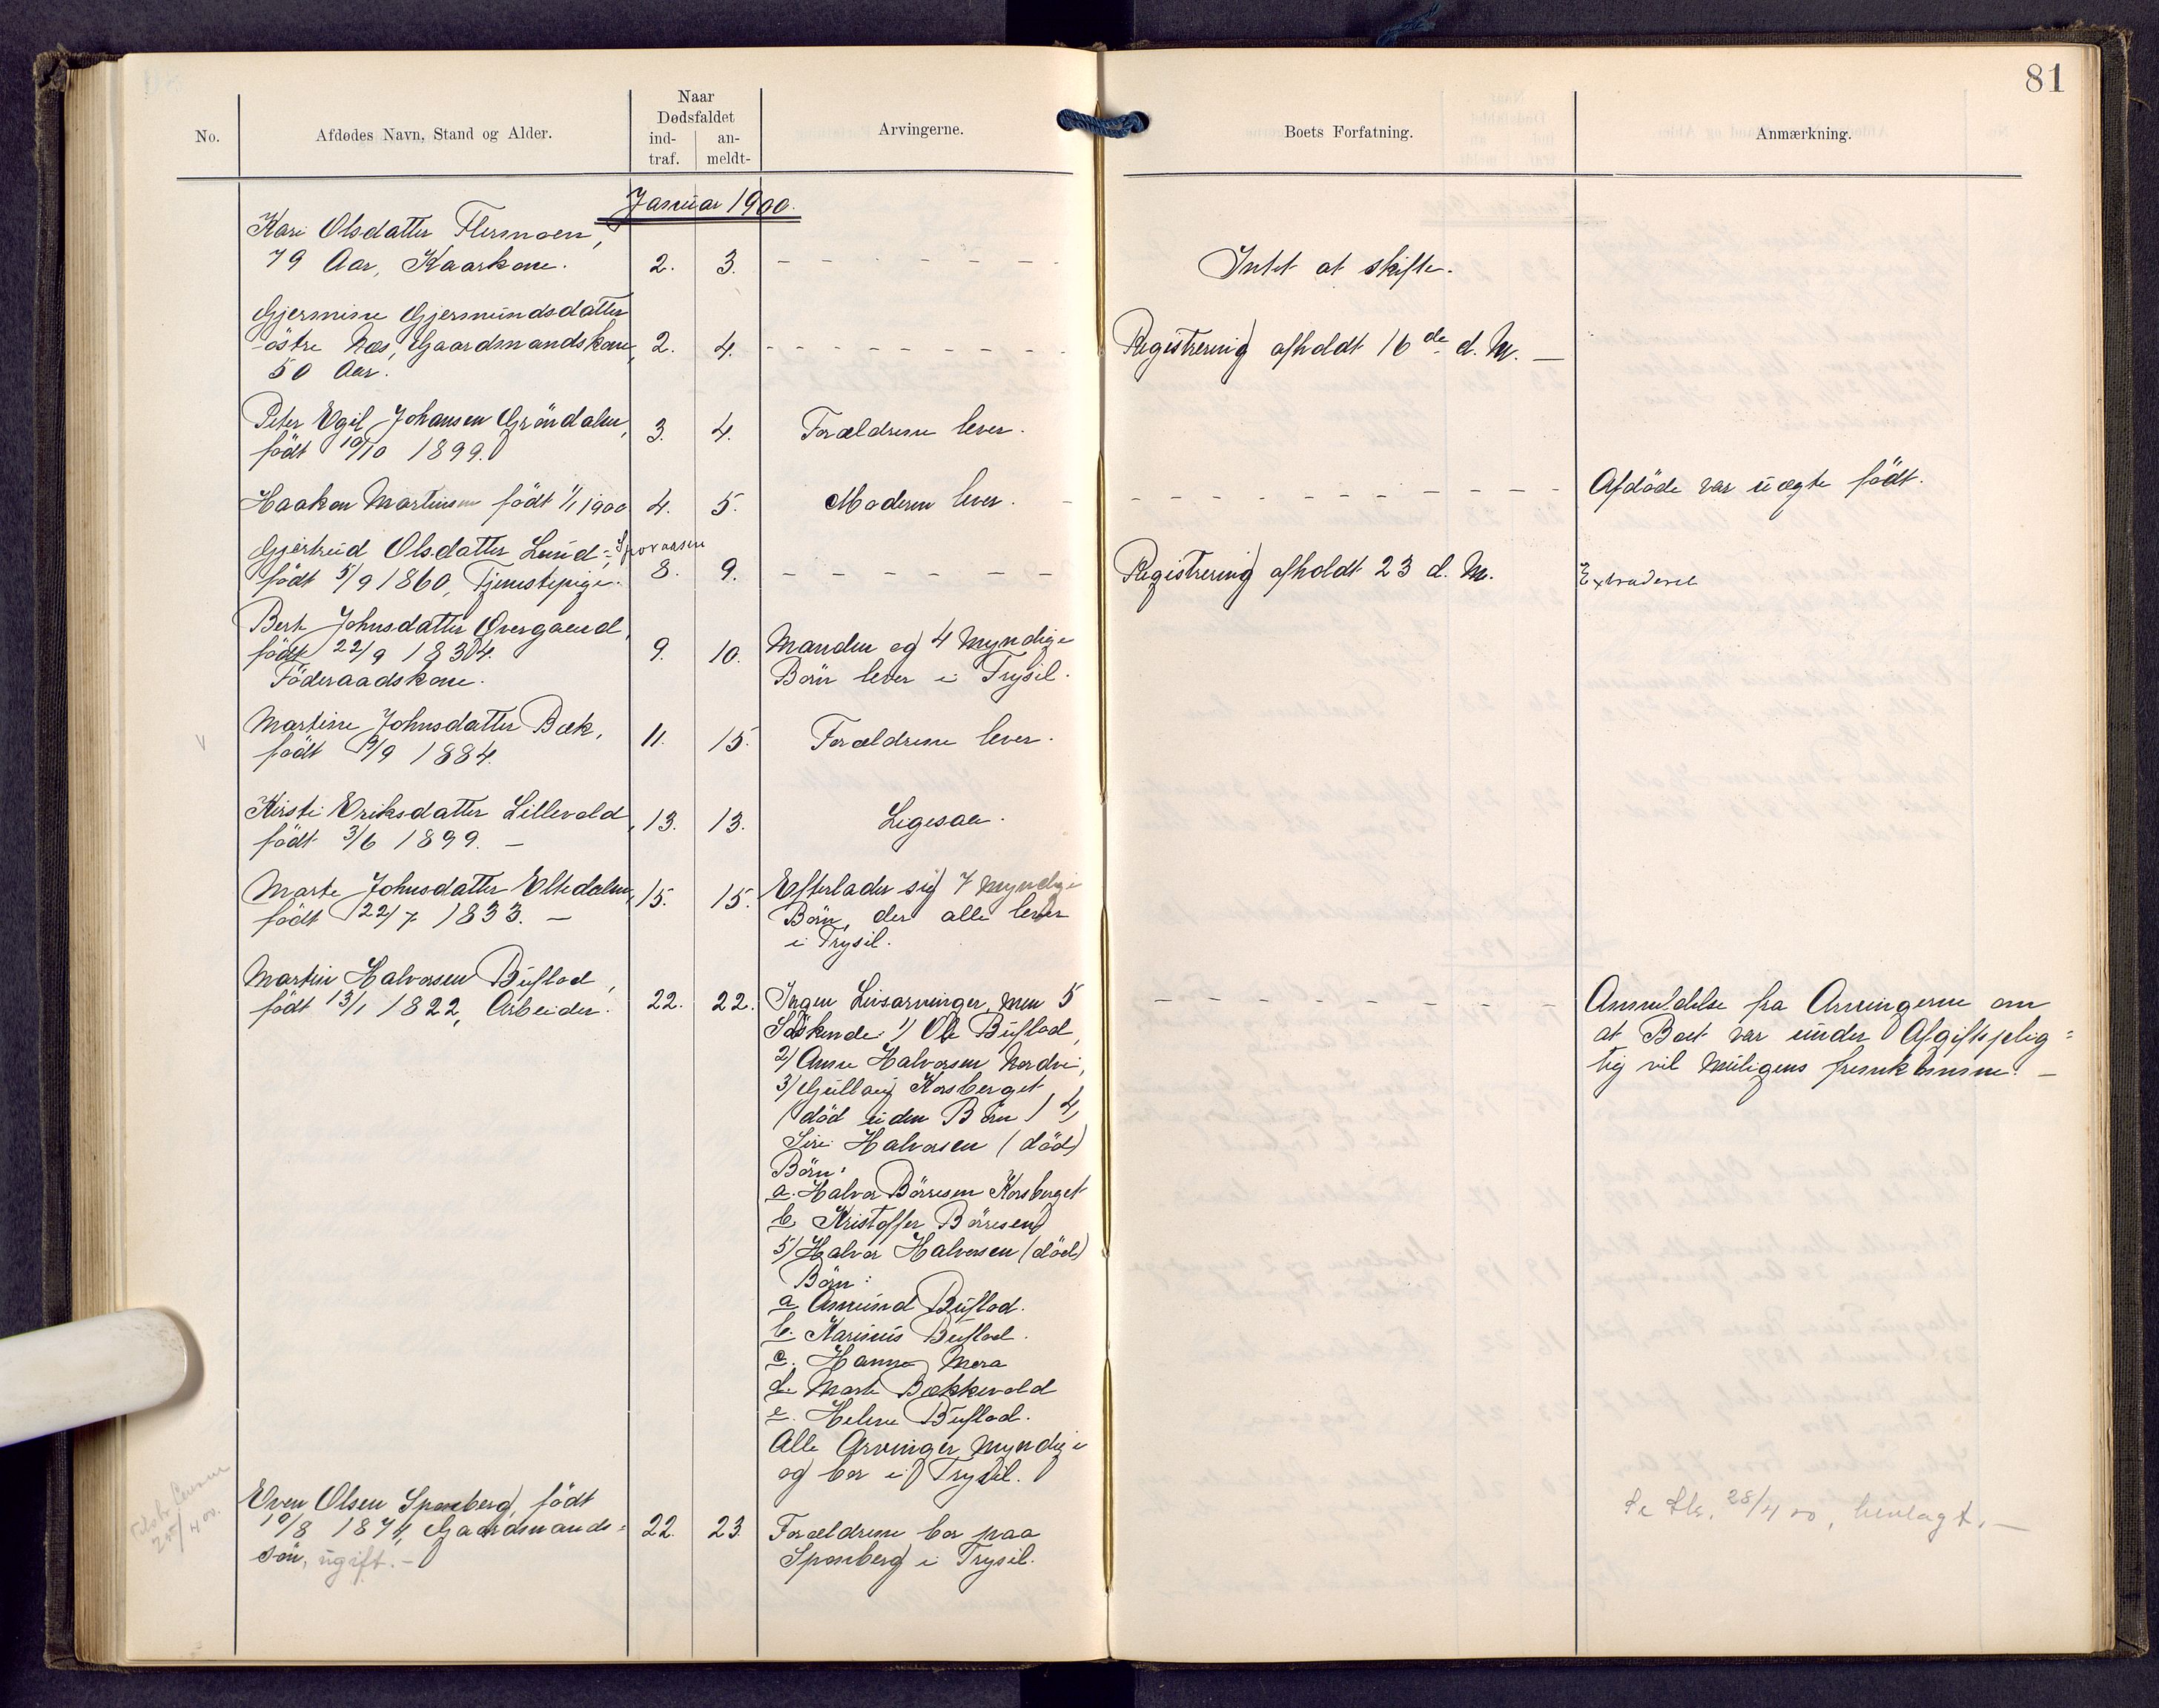 81
No.
Afdødes Navn, Stand og Alder.
Naar
Dødsfaldet
ind-
traf.
an-
meldt-
Arvingerne.
Boets Forfatning.
Anmærkning.
Januar 1900.
Kari Olsdatter Flermoen,
79 Aar, Kaarkone. 2. 3. Intet at skifte.
Gjermine Gjermundsdatter
östre Næs, Gaardmandskone, 2. 4. Registrering afholdt 16de d. M. —
50 Aar.
Peter Egil Johansen Gröndalen,
födt 10/10 1899. 3. 4. Forældrene lever.
Haakon Martinsen födt 1/1 1900 4. 5. Moderen lever. Afdöde var uægte födt.
Gjertrud Olsdatter Lund-
födt 5/9 1860, Tjenestepige. 8. 9. Registrering afholdt 23 d. M. Extraderet
Bert Johnsdatter Overgaard,
födt 22/9 1834. 9. 10. Manden og 4 Myndige
Föderaadskone. Börn lever i Trysil.
Martine Johnsdatter Bæk,
födt 19/9 1884. 11. 15. Forældrene lever.
Kirsti Eriksdatter Lillevold,
födt 3/6 1899. — 13. 13. Ligesaa.
Marte Johnsdatter Eltedalen,
födt 22/7 1833. — 15. 15. Efterlader sig 7 Myndige
Börn, der alle lever
i Trysil.
Martin Halvorsen Buflod,
födt 13/1 1822, Arbeider. 22. 22. Ingen Livsarvinger, men 5
Söskende: 1) Ole Buflod,
2) Anne Halvorsen Nordvi,
3) Gullaug Korsberget
(död uden Börn) 4)
Siri Halvorsen (död)
Börn:
a. Halvor Börresen Korsberget
b. Kristoffer Börresen
5) Halvor Halvorsen (död)
Börn:
a. Amund Buflod.
b. Karinius Buflod.
c. Hanna Mora
d. Marte Bækkevold
e. Helene Buflod.
Alle Arvinger Myndige
og bor i Trysil.
Anmeldelse fra Arvingerne om
at Boet var under Afgiftsplig=
tig vil muligens fremkomme. —
Even Olsen Sponberg, födt
10/8 1874, Gaardmands=
sön, ugift. — 22. 23. Forældrene bor paa
Sponberg i Trysil.
Se Skr. 28/4 00, henlagt. —